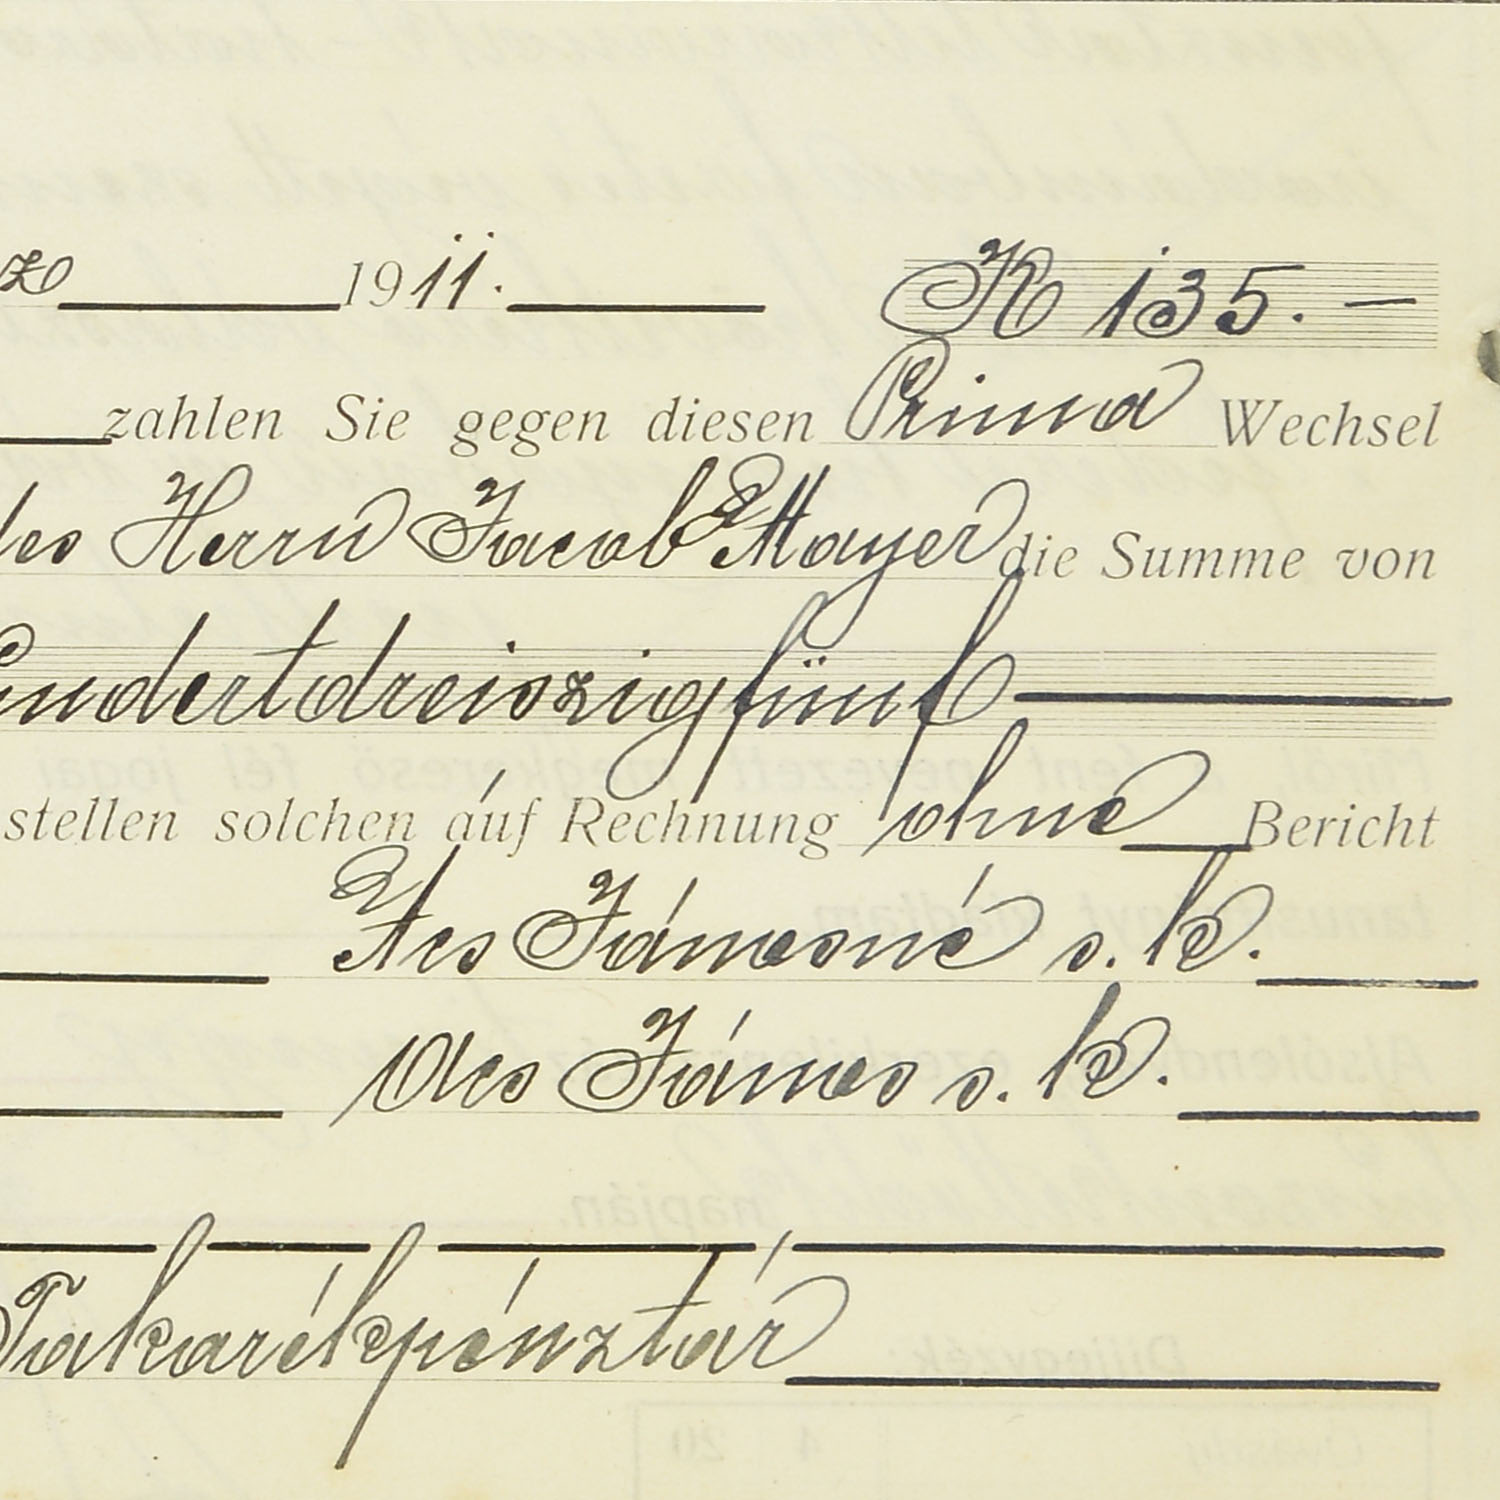 1911. K 135.—
zahlen Sie gegen diesen Prima Wechsel
des Herrn Jacob Mayer die Summe von
undertdreiszigfünf
stellen solchen auf Rechnung ohne Bericht
Ács Jánosné s. k.
Ács János s. k.
Takarékpénztár